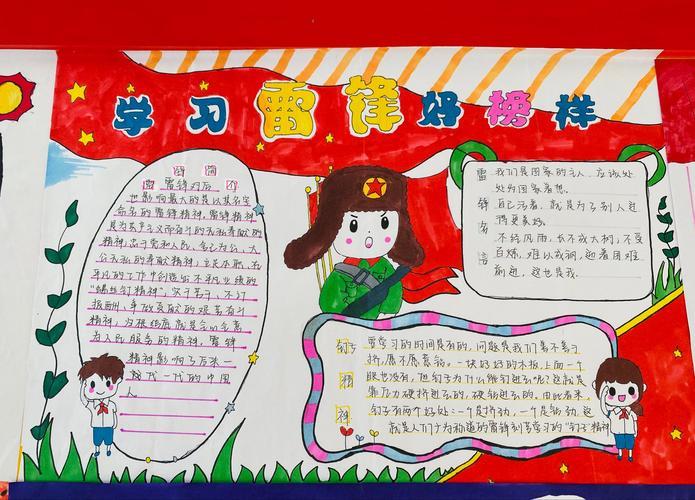 学习雷锋好榜样
雷锋对后
也影响最大的是以其名字
命名的雷锋精神,雷锋精神
精神,忠于党和人民、舍己为公、大
公无私的奉献精神;立足本职、在
平凡的工作中创造出不平凡业绩的
“螺丝钉精神”;苦干实干、不计
报酬、争做贡献的艰苦奋斗
精神,归根结底就是全心全意
为人民服务的精神。雷锋
精神影响了万来一
代一代的中国
人
雷锋名言
我们是国家的主人,应该处
处为国家着想。
自己活着,就是为了别人过
得更美好。
不经风雨,长不成大树;不受
百炼,难以成钢。迎着困难
前进,这也是我
钉子精神
学习的时间是有的,问题是我们善不善于
挤,愿不愿意钻。一块好好的木板,上面一个
眼也没有,但钉子为什么能钉进去呢?这就是
靠压力硬挤进去的,硬钻进去的。由此看来,
钉子有两个好处:一个是挤劲,一个是钻劲。这
就是人们广为知道的雷锋刻苦学习的“钉子”精神